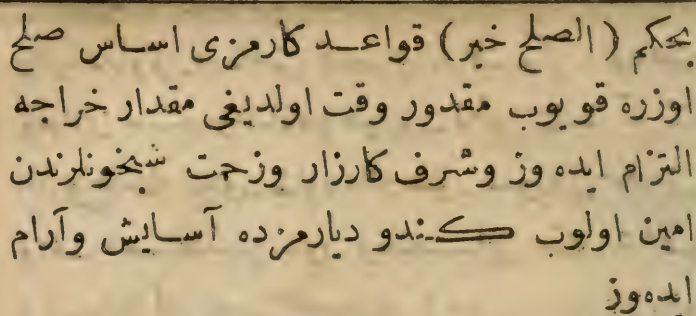 بحكم (الصلح خير) قواعد كارمزى اساس صلح
اوزره قويوب مقدور وقت اولديغى مقدار خراجه
التزام ايده وز وشرف كارزار وزحمت شبخونلرندن
امين اولوب كندو ديارمزده آسايش وآرام
ايده‌وز